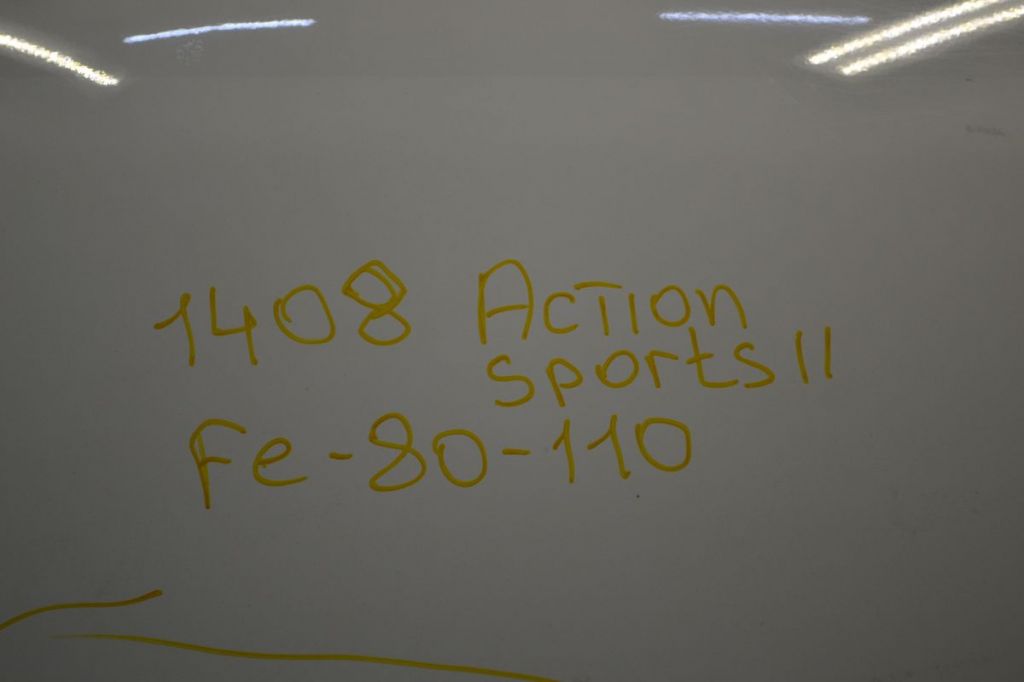 1408 Action
sports II
Fe-80-110